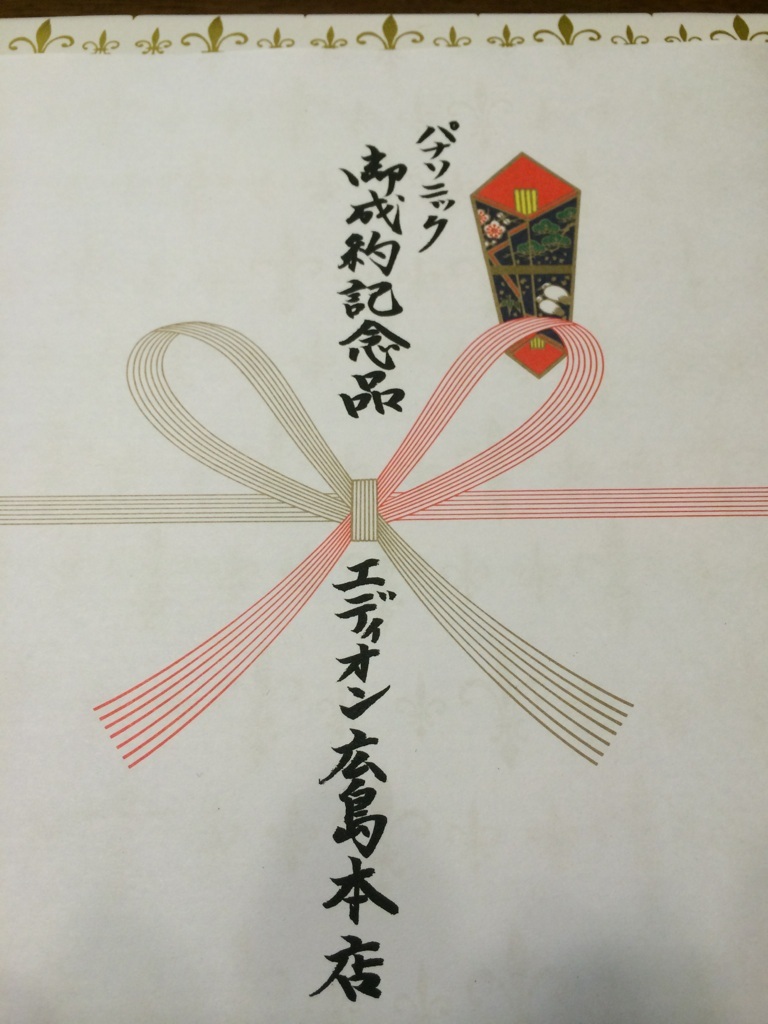 パナソニック
御成約記念品
エディオン広島本店